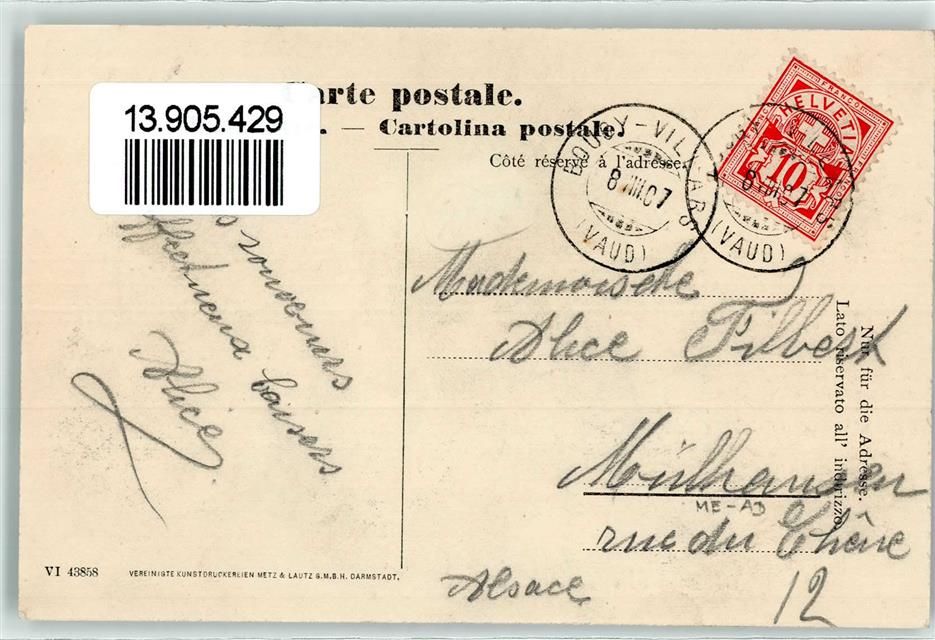 13.905.429
Carte postale.
— Cartolina postale.
Côté réservé à l'adresse.
BOUGY-VILLARS
8.VIII.07
(VAUD)
BOUGY-VILLARS
8.VIII.07
(VAUD)
FRANCO
HELVETIA
10
souvenirs
baisers
Alice.
Mademoiselle
Alice Filbert
Mülhausen
ME-AD
rue du Chêne
12
Alsace
Nur für die Adresse.
Lato riservato all' indirizzo
VI 43858
VEREINIGTE KUNSTDRUCKEREIEN METZ & LAUTZ G.M.B.H. DARMSTADT.